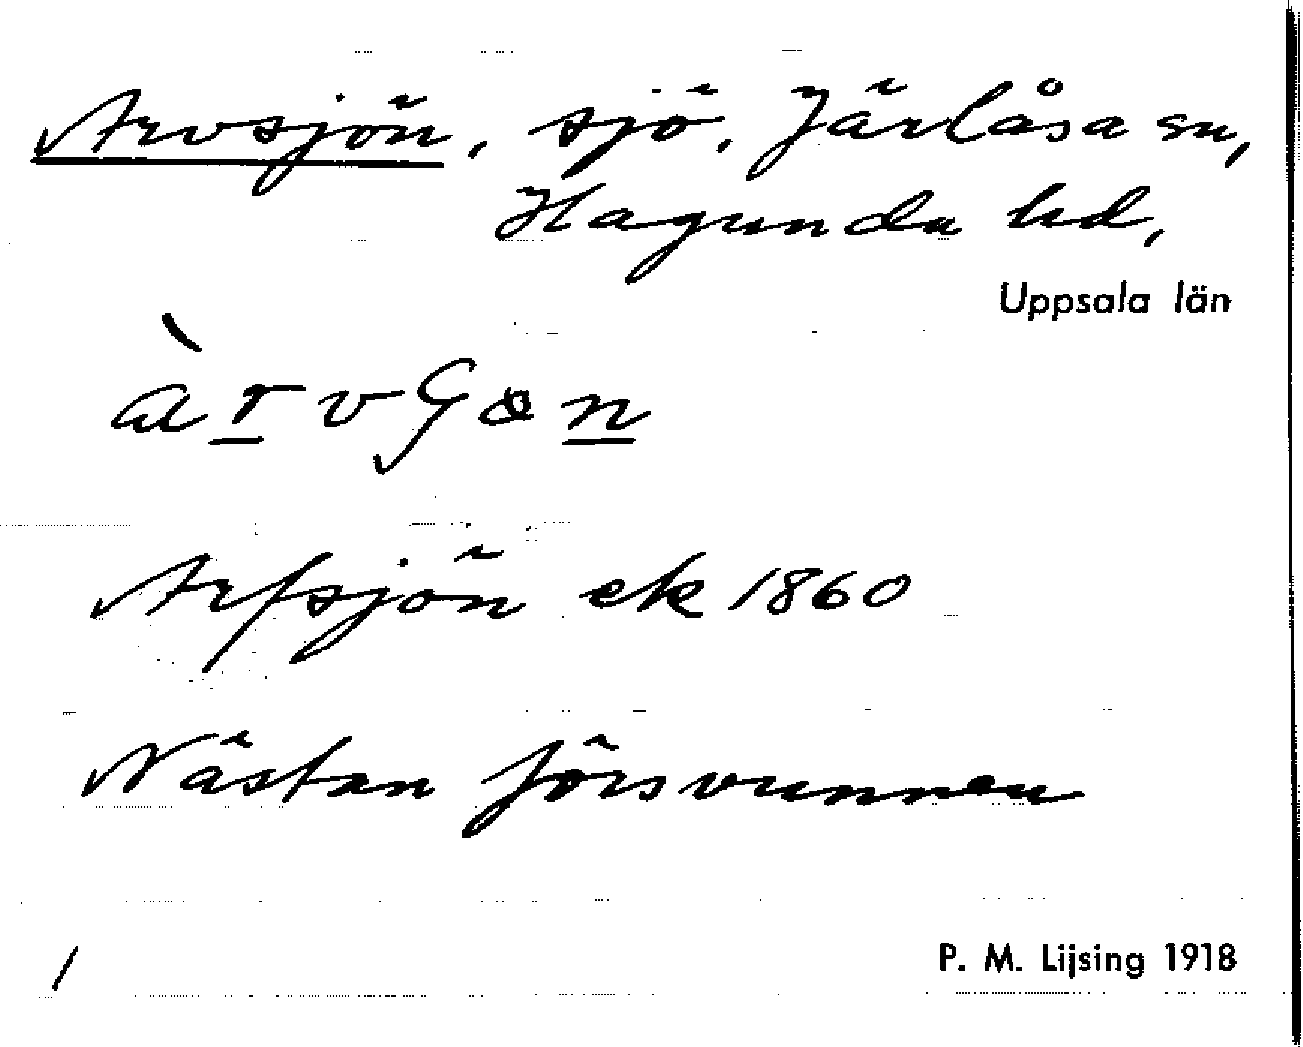 Arvsjön, sjö, Järlåsa sn,
Hagunda hd,
Uppsala län
Arfsjön ek 1860
Nästan försvunnen
/
P. M. Lijsing 1918